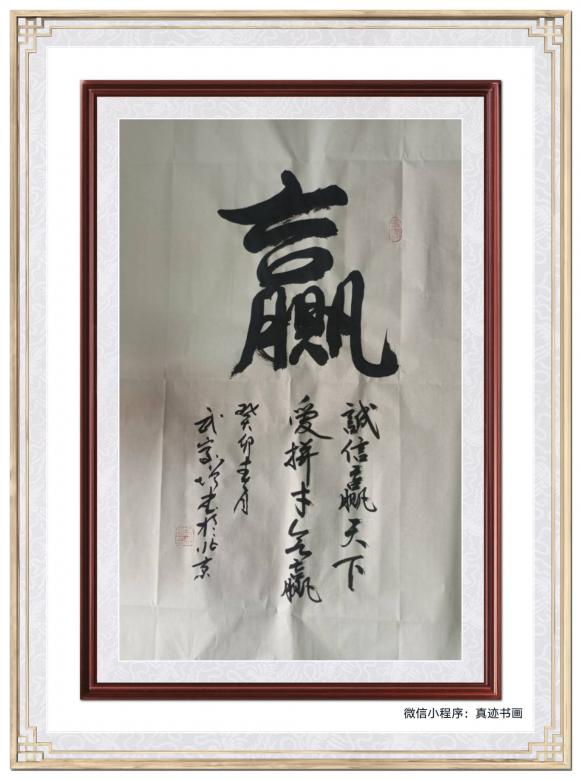 赢
誠信赢天下
愛拼才会赢
癸卯春月
武宗增书於北京
微信小程序：真迹书画